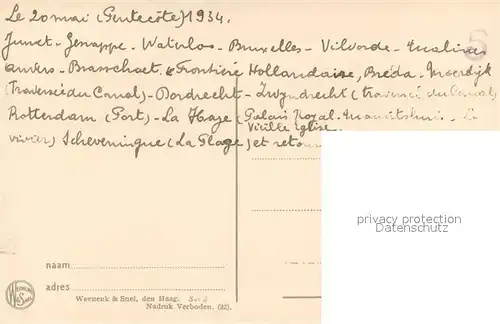 Le 20 mai (Pentecôte) 1934.
Jumet - Genappe - Waterloo - Bruxelles - Vilvorde - Malines
Anvers - Brasschaet. Frontière Hollandaise, Breda. Moerdijk
(Traversée du Canal) - Dordrecht - Zwyndrecht (traversée du Canal)
Rotterdam (Port) - La Haye (Palais Royal. Mauritshuis. Le
Vieille église.
vivier) Scheveningue (La Plage) et retour
privacy protection
www.ansichtskarten-center.de
naam
adres
Weenenk & Snel, den Haag.
Nadruk Verboden. (32).